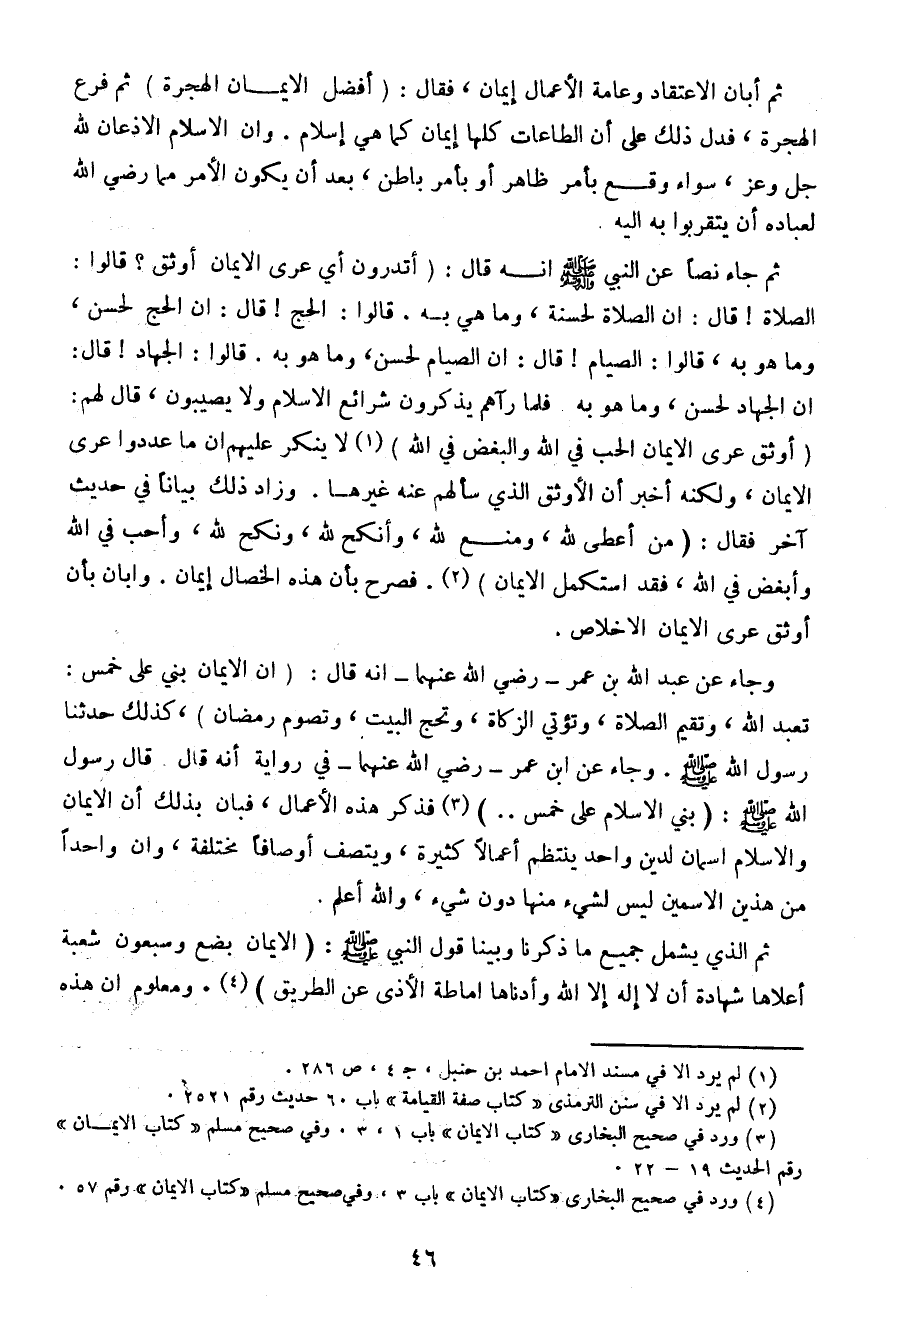 ثم أبان الاعتقاد وعامة الأعمال إيمان ، فقال : ( أفضل الايمـــان الهجرة ) ثم فرع
الهجرة ، فدل ذلك على أن الطاعات كلها إيمان كما هي إسلام . وان الاسلام الاذعان لله
جل وعز ، سواء وقـــع بأمر ظاهر أو بأمر باطن ، بعد أن يكون الأمر مما رضي الله
لعباده أن يتقربوا به اليه .
ثم جاء نصاً عن النبي ﷺ انـــه قال : ( أتدرون أي عرى الايمان أوثق ؟ قالوا :
الصلاة ! قال : ان الصلاة لحسنة ، وما هي بـه . قالوا : الحج ! قال : ان الحج لحسن ،
وما هو به ، قالوا : الصيام ! قال : ان الصيام لحسن، وما هو به . قالوا : الجهاد ! قال:
ان الجهاد لحسن ، وما هو به . فلما رآهم يذكرون شرائع الاسلام ولا يصيبون ، قال لهم:
( أوثق عرى الايمان الحب في الله والبغض في الله ) (١) لا ينكر عليهم ان ما عددوا عرى
الايمان ، ولكنه أخبر أن الأوثق الذي سألهم عنه غيرهـا . وزاد ذلك بياناً في حديث
آخر فقال : ( من أعطى لله ، ومنـــع لله ، وأنكح لله ، ونكح لله ، وأحب في الله
وأبغض في الله ، فقد استكمل الايمان ) (٢) . فصرح بأن هذه الخصال إيمان . وابان بأن
أوثق عرى الايمان الاخلاص .
وجاء عن عبد الله بن عمر – رضي الله عنهما – انه قال : ( ان الايمان بني على خمس :
تعبد الله ، وتقيم الصلاة ، وتؤتي الزكاة ، وتحج البيت ، وتصوم رمضان ) ، كذلك حدثنا
رسول الله ﷺ . وجاء عن ابن عمر – رضي الله عنهما – في رواية أنه قال . قال رسول
الله ﷺ : ( بني الاسلام على خمس .. ) (٣) فذكر هذه الأعمال ، فبان بذلك أن الايمان
والاسلام اسمان لدين واحد ينتظم أعمالاً كثيرة ، ويتصف أوصافاً مختلفة ، وان واحداً
من هذين الاسمين ليس لشيء منها دون شيء ، والله أعلم .
ثم الذي يشمل جميع ما ذكرنا وبينا قول النبي ﷺ : ( الايمان بضع وسبعون شعبة
أعلاها شهادة أن لا إله إلا الله وأدناها اماطة الأذى عن الطريق ) (٤) . ومعلوم ان هذه
(١) لم يرد الا في مسند الامام احمد بن حنبل ، ج ٤ ، ص ٢٨٦ .
(٢) لم يرد الا في سنن الترمذى « كتاب صفة القيامة » باب ٦٠ حديث رقم ٢٥٢١ .
(٣) ورد في صحيح البخارى « كتاب الايمان » باب ١ ، ٣ . وفي صحيح مسلم « كتاب الايمـــان »
رقم الحديث ١٩ – ٢٢ .
(٤) ورد في صحيح البخارى «كتاب الايمان » باب ٣ ، وفي صحيح مسلم «كتاب الايمان » رقم ٥٧ .
٤٦